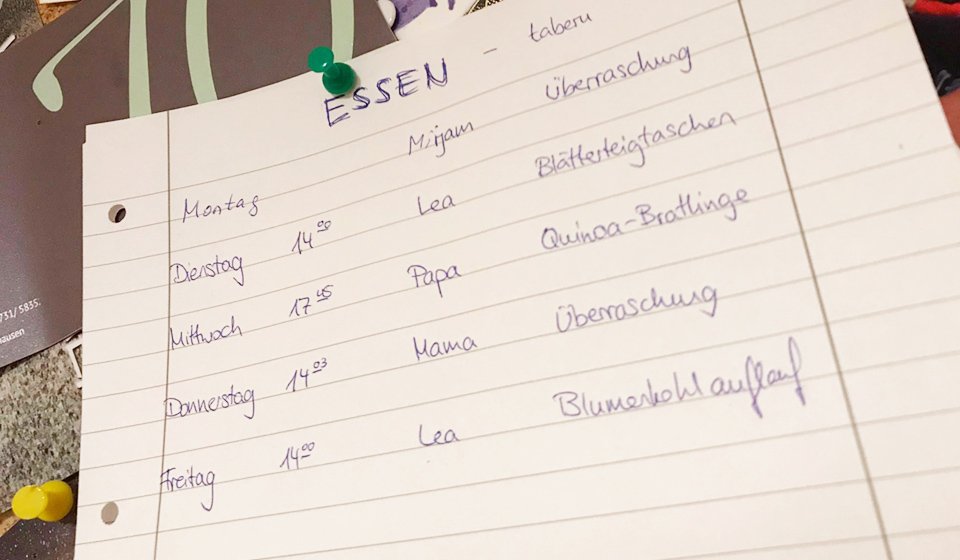 ESSEN - taberu
Montag Mirjam Überraschung
Dienstag 14⁰⁰ Lea Blätterteigtaschen
Mittwoch 17⁴⁵ Papa Quinoa-Bratlinge
Donnerstag 14⁰³ Mama Überraschung
Freitag 14⁰⁰ Lea Blumenkohlauflauf